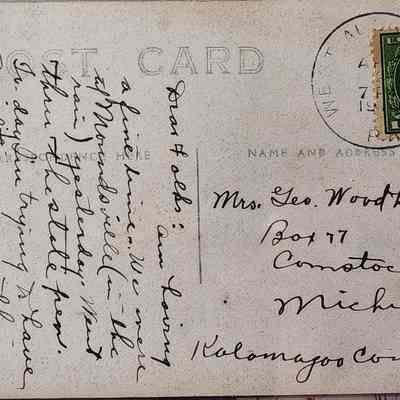 POST CARD
WEST AL
7
19
CORRESPONDENCE HERE
NAME AND ADDRESS
Dear Folks: am having
a fine time. We were
at Moundsville (in the
rain) yesterday. Went
thru the state pen.
To day I'm trying to have
Mrs. Geo. Wood
Box 77
Comstoc
Michi
Kalamazoo Co